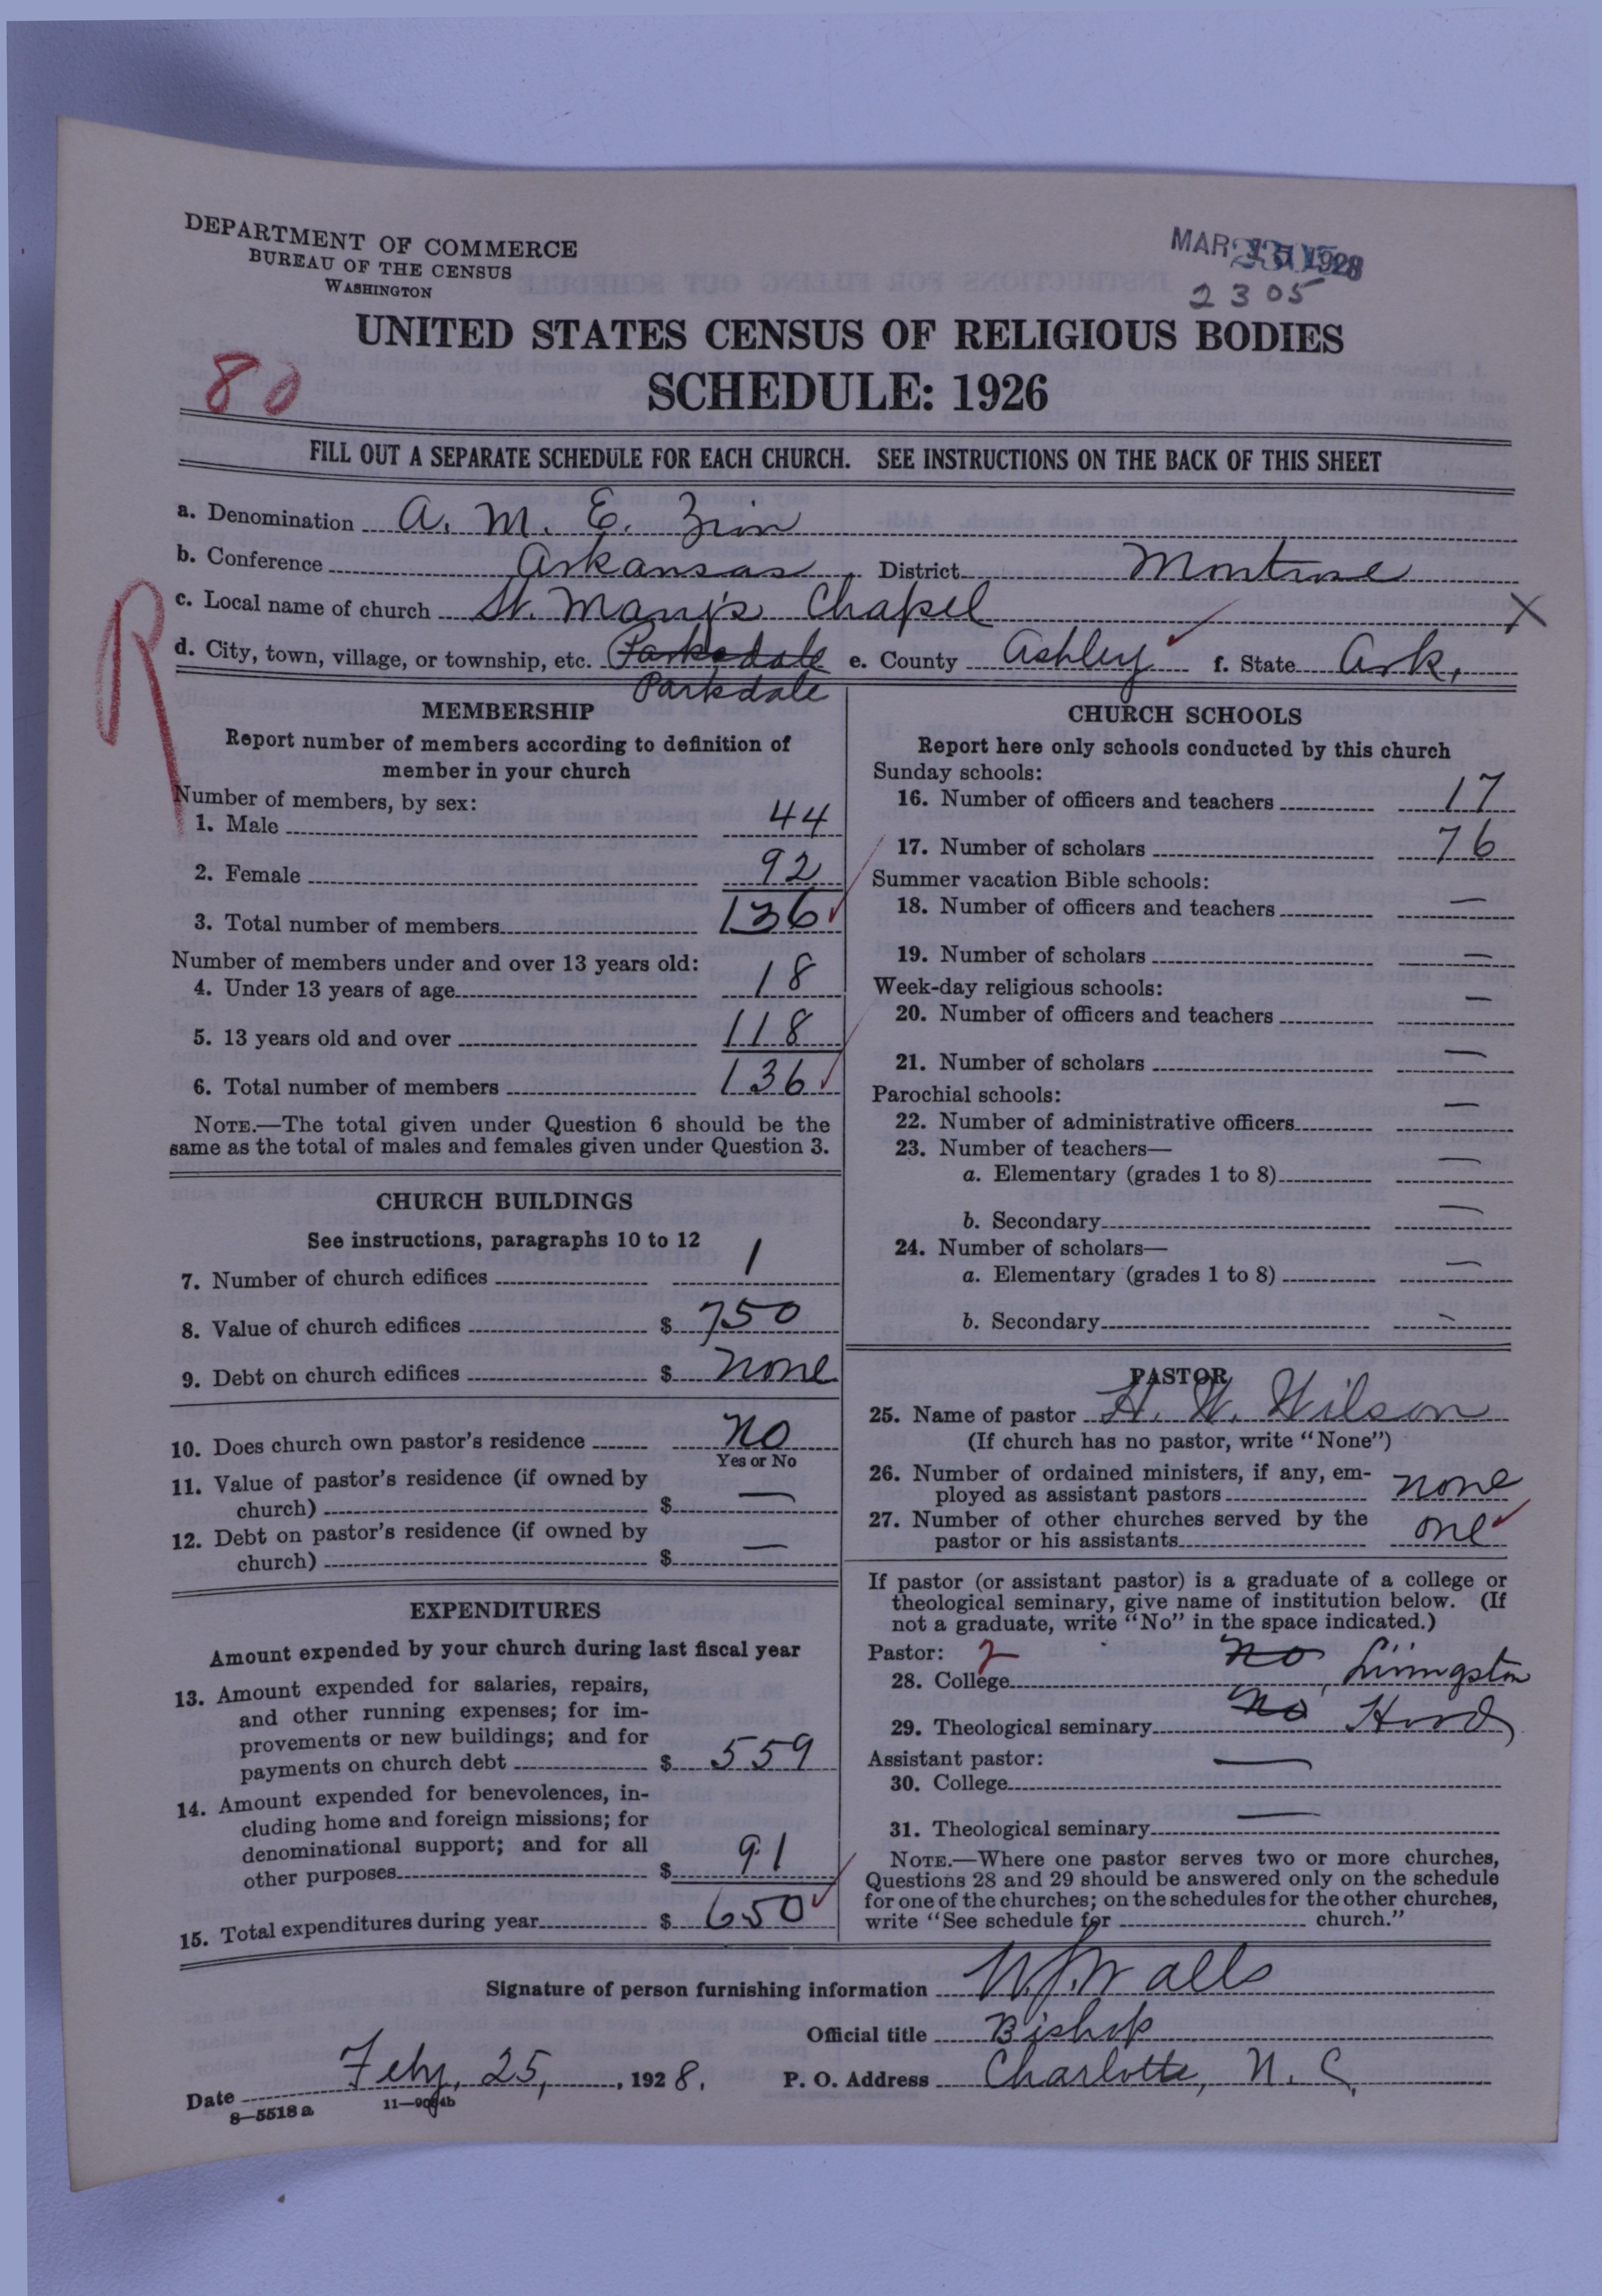 DEPARTMENT OF COMMERCE
BUREAU OF THE CENSUS
WASHINGTON
MAR 1928
2305
UNITED STATES CENSUS OF RELIGIOUS BODIES
80
SCHEDULE: 1926
FILL OUT A SEPARATE SCHEDULE FOR EACH CHURCH. SEE INSTRUCTIONS ON THE BACK OF THIS SHEET
a. Denomination A. M. E. Zion
b. Conference Arkansas District Montrose
c. Local name of church St. Mary's Chapel X
R
d. City, town, village, or township, etc. Parksdale e. County Ashley f. State Ark.
Parkdale
MEMBERSHIP
Report number of members according to definition of
member in your church
Number of members, by sex:
1. Male 44
2. Female 92
3. Total number of members 136
Number of members under and over 13 years old:
4. Under 13 years of age 18
5. 13 years old and over 118
6. Total number of members 136
NOTE.—The total given under Question 6 should be the
same as the total of males and females given under Question 3.
CHURCH BUILDINGS
See instructions, paragraphs 10 to 12
7. Number of church edifices 1
8. Value of church edifices $ 750
9. Debt on church edifices $ none
10. Does church own pastor's residence no
Yes or No
11. Value of pastor's residence (if owned by
church) $ —
12. Debt on pastor's residence (if owned by
church) $ —
EXPENDITURES
Amount expended by your church during last fiscal year
13. Amount expended for salaries, repairs,
and other running expenses; for im-
provements or new buildings; and for
payments on church debt $ 559
14. Amount expended for benevolences, in-
cluding home and foreign missions; for
denominational support; and for all
other purposes $ 91
15. Total expenditures during year $ 650
CHURCH SCHOOLS
Report here only schools conducted by this church
Sunday schools:
16. Number of officers and teachers 17
17. Number of scholars 76
Summer vacation Bible schools:
18. Number of officers and teachers —
19. Number of scholars —
Week-day religious schools:
20. Number of officers and teachers —
21. Number of scholars —
Parochial schools:
22. Number of administrative officers —
23. Number of teachers—
a. Elementary (grades 1 to 8) —
b. Secondary —
24. Number of scholars—
a. Elementary (grades 1 to 8) —
b. Secondary —
PASTOR
25. Name of pastor H. W. Wilson
(If church has no pastor, write "None")
26. Number of ordained ministers, if any, em-
ployed as assistant pastors none
27. Number of other churches served by the
pastor or his assistants one
If pastor (or assistant pastor) is a graduate of a college or
theological seminary, give name of institution below. (If
not a graduate, write "No" in the space indicated.)
Pastor: 2
28. College no, Livingston
29. Theological seminary no Hood
Assistant pastor:
30. College —
31. Theological seminary —
NOTE.—Where one pastor serves two or more churches,
Questions 28 and 29 should be answered only on the schedule
for one of the churches; on the schedules for the other churches,
write "See schedule for church."
Signature of person furnishing information W. J. Walls
Official title Bishop
Date Feby. 25, 1928. P. O. Address Charlotte, N. C.
8—5518a 11—9084b